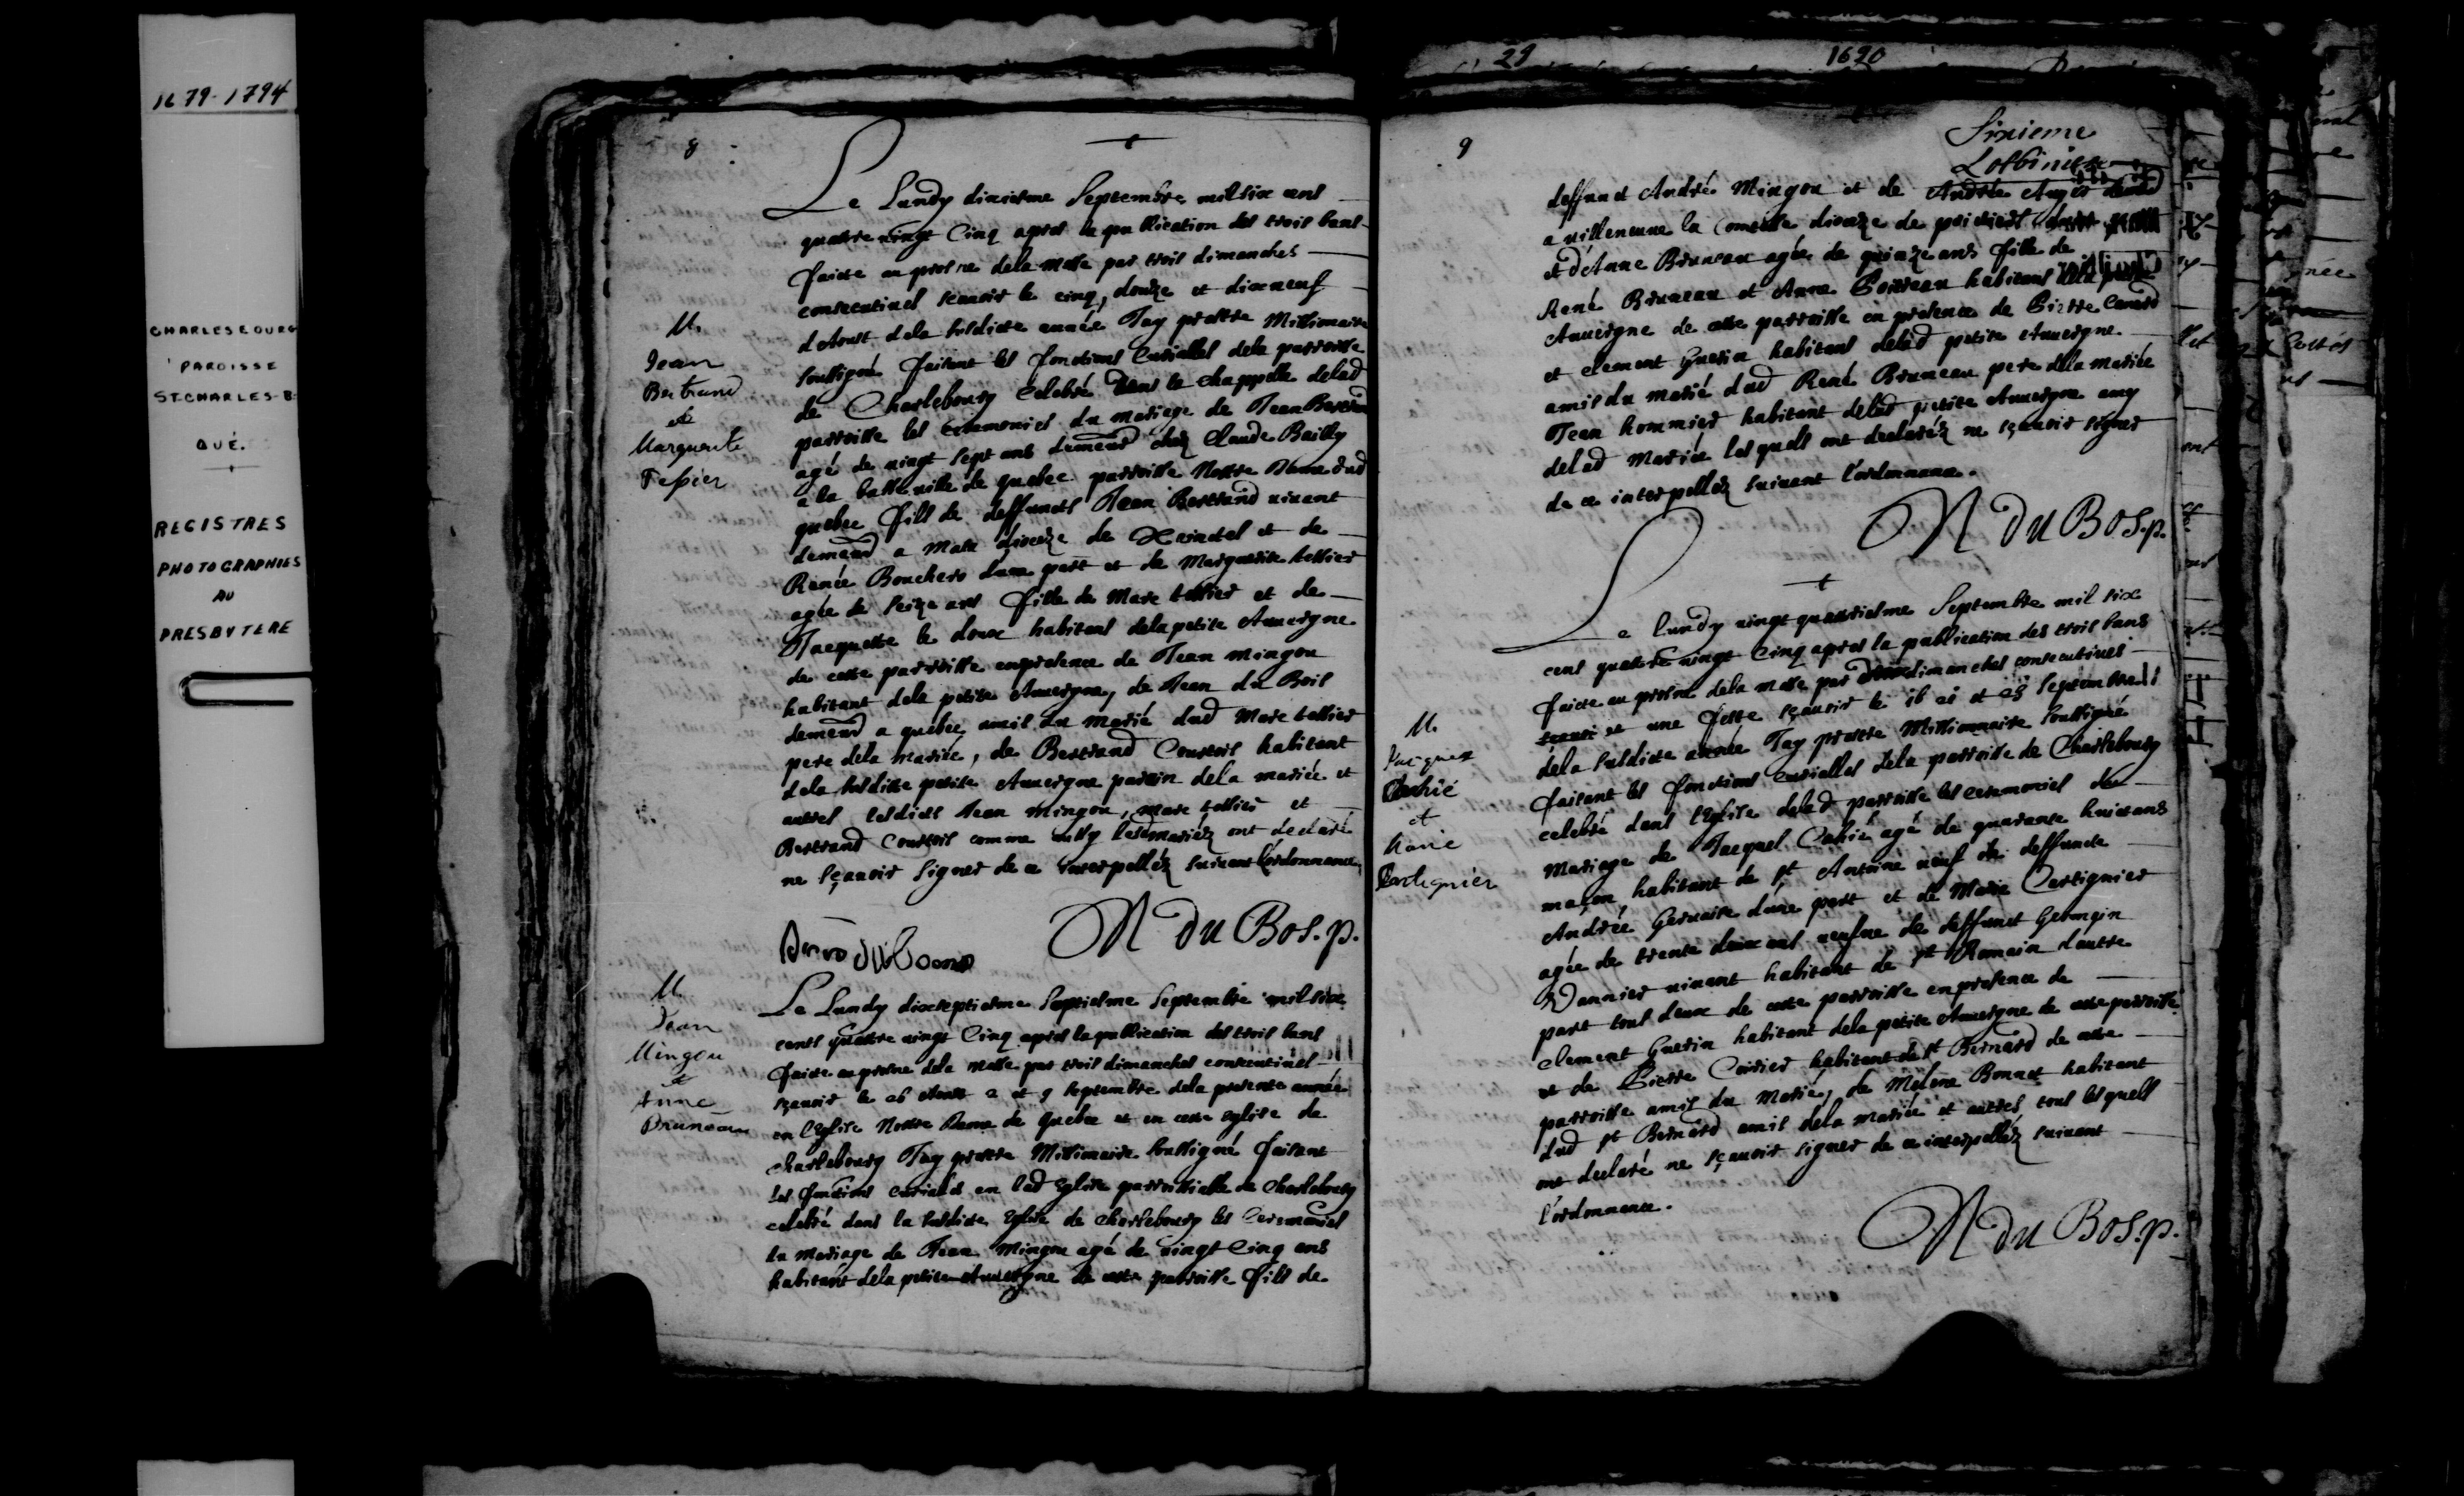 1679-1794
CHARLESBOURG
PAROISSE
ST-CHARLES-B.
QUÉ.
REGISTRES
PHOTOGRAPHIES
AU
PRESBYTERE
8
Le Lundy dixiesme Septembre mil six cens
quatre vingt Cinq apres la publication des trois bans
faicte au prosne dela messe par trois dimanches
consecutives scavoir le cinq, douze et dixneuf
d'Aoust dela susdicte année Jay prestre Missionnaire
soussigné faisant les fonctions Curialles dela parroisse
de Charlebourg celebré dans la chappelle delad
parroisse les ceremonies du mariage de Jean Bertrand
agé de vingt sept ans demeurd chez Claude Bailly
a la basse ville de quebec parroisse Nostre Dame dud
quebec fils de deffuncts Jean Bertrand vivant
demeurd a dioceze de Xainctes et de
Renée Bouchero dune part et de Marguerite tessier
agée de seize ans fille de Marc tessier et de
Jacquette le doux habitans dela petite Auvergne
de cette parroisse en presence de Jean mingou
habitant dela petite Auvergne, de Jean du Bois
demeurd a quebec amis du marié dud Marc tessier
pere dela mariée, de Bertrand Courtois habitant
dela susditte petite Auvergne parain dela mariée et
autres lesdicts Jean mingou, marc tessier et
Bertrand Courtois comme aussy lesd mariez ont declaré
ne sçavoir signer de ce interpellez suivant l'ordonnance
N du Bos. p.
M.
Jean
Bertrand
et
Marguerite
Tessier
M
Jean
Mingou
et
Anne
Bruneau
Le Lundy dixseptiesme Septiesme Septembre mil six
cents quattre vingt Cinq apres la publication des trois bans
faicte au prosne dela messe par trois dimanches consecutives
scavoir le 26 Aoust 2 et 9 septembre dela presente année
en l'Eglise Nostre Dame de Quebec et en cette eglise de
charlebourg Jay prestre Missionaire soussigné faisant
les fonctions curiales en lad Eglise parroissialle de charlebourg
celebré dans la susdicte Eglise de charlebourg les Ceremonies
du mariage de Jean Mingou agé de vingt Cinq ans
habitant dela petite Auvergne de cette parroisse fils de
29 1690
9
Sixieme
Lotbiniere
deffunct André Mingou et de Andrée
a villeneuve la Comtesse dioceze de poictiers
et d'Anne Bruneau agée de quinze ans fille de
René Bruneau et Anne Poitreau habitans
Auvergne de cette parroisse en presence de Pierre Canard
et clement Guerin habitans delad petite Auvergne
amis du marié dud René Bruneau pere dela mariée
Jean hommier habitant delad petite Auvergne amy
delad mariée lesquels ont declarez ne sçavoir signer
de ce interpellez suivant l'ordonnance.
N du Bos. p.
Le Lundy vingt quatriesme Septembre mil six
cens quattre vingt Cinq apres la publication des trois bans
faicte au prosne dela messe par deux dimanches consecutives
et une feste sçavoir le 16 21 et 23 Septembre
dela susdicte année Jay prestre Missionnaire soussigné
faisant les fonctions curialles dela parroisse de Charlebourg
celebré dans l'Eglise delad parroisse les ceremonies du
Mariage de Jacques Cachié agé de quarante huict ans
maçon, habitant de st Antoine veuf de deffuncte
Andrée Gervaise dune part et de Marie Cartignier
agée de trente deux ans veufve de deffunct Georgin
Vannier vivant habitant de st Romain d'autre
part tous deux de cette parroisse en presence de
clement Guerin habitant dela petite Auvergne de cette parroisse
et de Pierre Coirier habitant de st Bernard de cette
parroisse amis du Marié, de Bonnet habitant
dud st Bernard amis dela mariée et autres tous lesquels
ont declaré ne sçavoir signer de ce interpellez suivant
l'ordonnance.
N du Bos. p.
M.
Jacques
Cachié
et
Marie
Cartignier